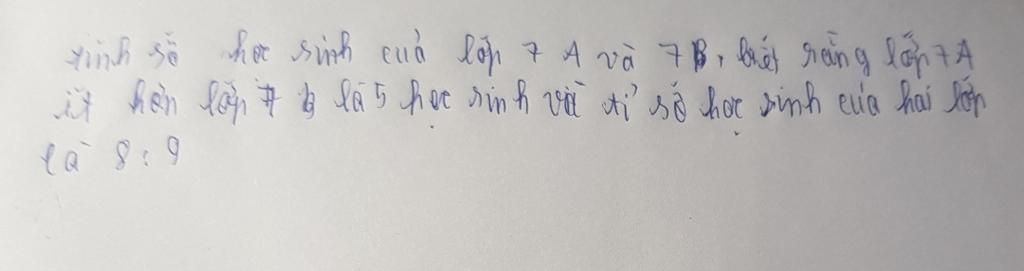 tính số học sinh của lớp 7 A và 7B, biết rằng lớp 7A
ít hơn lớp 7 b là 5 học sinh và tỉ số học sinh của hai lớp
là 8 : 9